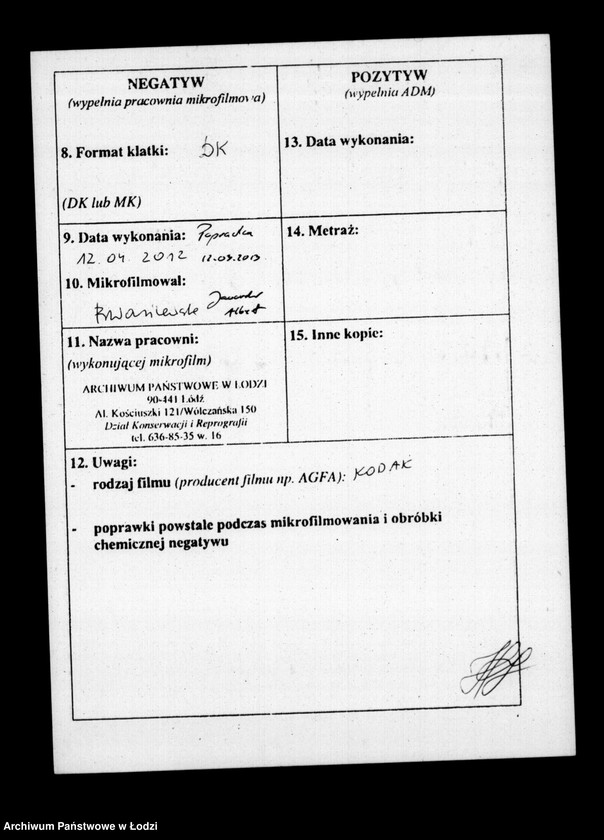 NEGATYW
(wypełnia pracownia mikrofilmowa)
8. Format klatki: DK
(DK lub MK)
9. Data wykonania: Poprawka
12.04.2012 12.09.2013
10. Mikrofilmował:
11. Nazwa pracowni:
(wykonującej mikrofilm)
ARCHIWUM PAŃSTWOWE W ŁODZI
90-441 Łódź
Al. Kościuszki 121/Wólczańska 150
Dział Konserwacji i Reprografii
tel. 636-85-35 w. 16
POZYTYW
(wypełnia ADM)
13. Data wykonania:
14. Metraż:
15. Inne kopie:
12. Uwagi:
- rodzaj filmu (producent filmu np. AGFA): KODAK
- poprawki powstałe podczas mikrofilmowania i obróbki
chemicznej negatywu
Archiwum Państwowe w Łodzi